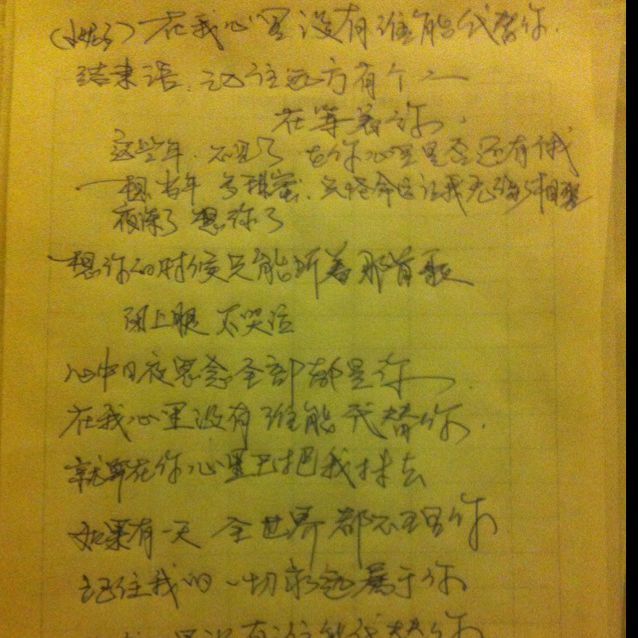 在我心里没有谁能代替你.
结束语. 记住远方有个人
在等着你.
这些年. 不见了 在你心里是否还有我
想当年 多甜蜜. 只怪命运让我无缘与相聚
夜深了 想你了
想你的时候只能听着那首歌
闭上眼 不哭泣
心中日夜思念全部都是你.
在我心里没有谁能代替你.
就算在你心里已把我抹去
如果有一天 全世界都不理你
记住我的一切永远属于你
里没有谁能代替你